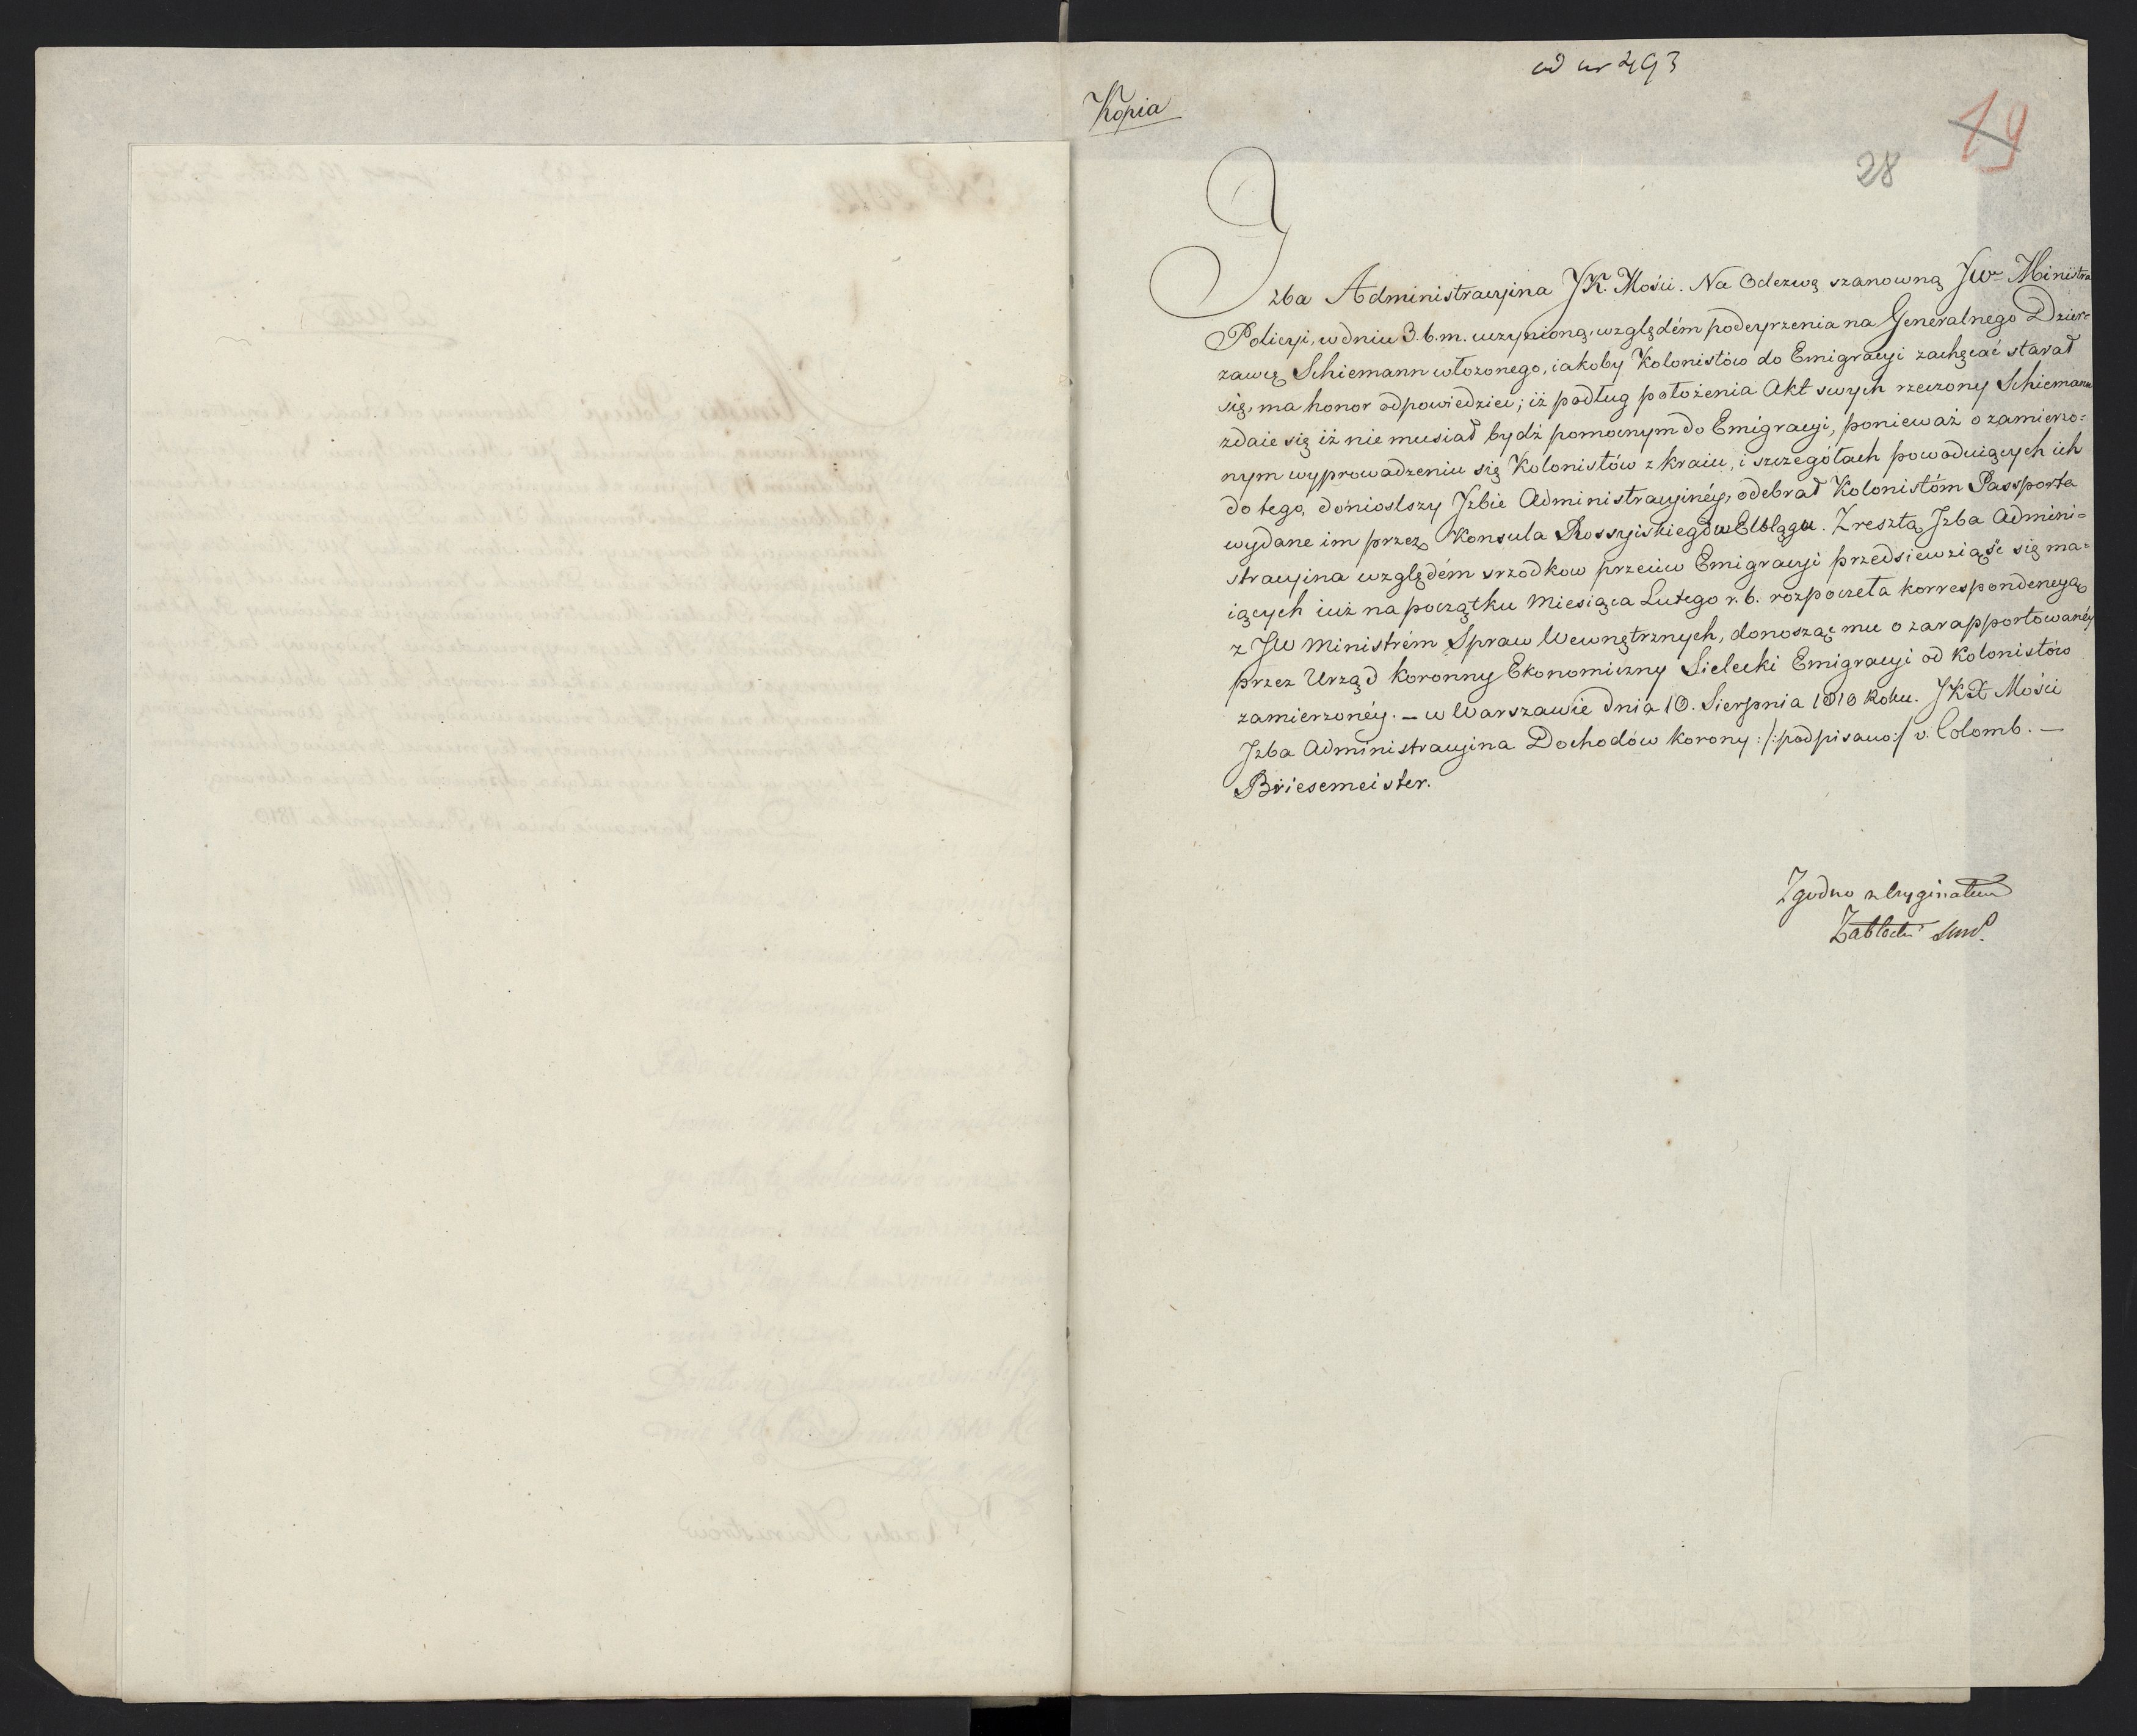 ad nr 493
Kopia
19
28
Jzba Administracyina JK. Mości. Na Odezwę szanowną JWo Ministra
Policyi, w dniu 3. b. m. uczynioną, względém podeyrzenia na Generalnego Dzier=
zawcę Schiemann włożonego, iakoby Kolonistów do Emigracyi zachęcać starał
się, ma honor odpowiedzieć; iż podług położenia Akt swych rzeczony Schiemann
zdaie się iż nie musiał bydź pomocnym do Emigracyi, ponieważ o zamierzo=
nym wyprowadzeniu się Kolonistów z kraiu, i szczegółach powoduiących ich
do tego, doniosłszy Jzbie Administracyinéy, odebrał Kolonistóm Passporta
wydane im przez Konsula Rossyiskiego w Elblągu. Zresztą Jzba Admini=
stracyina względém srzodkow przeciw Emigracyi przedsiewziąść się ma=
iących iuż na początku Miesiąca Lutego r. b. rozpoczeła korrespondencyą
z JW Ministrém Spraw Wewnętrznych, donosząc mu o zarapportowanéy
przez Urząd koronny Ekonomiczny Sielecki Emigracyi od Kolonistów
zamierzonéy. — w Warszawie dnia 10. Sierpnia 1810 Roku. JKX Mości
Jzba Administracyina Dochodów korony :/: podpisano :/ v. Colomb. —
Briesemeister.
Zgodno z Oryginałem
Zabłocki